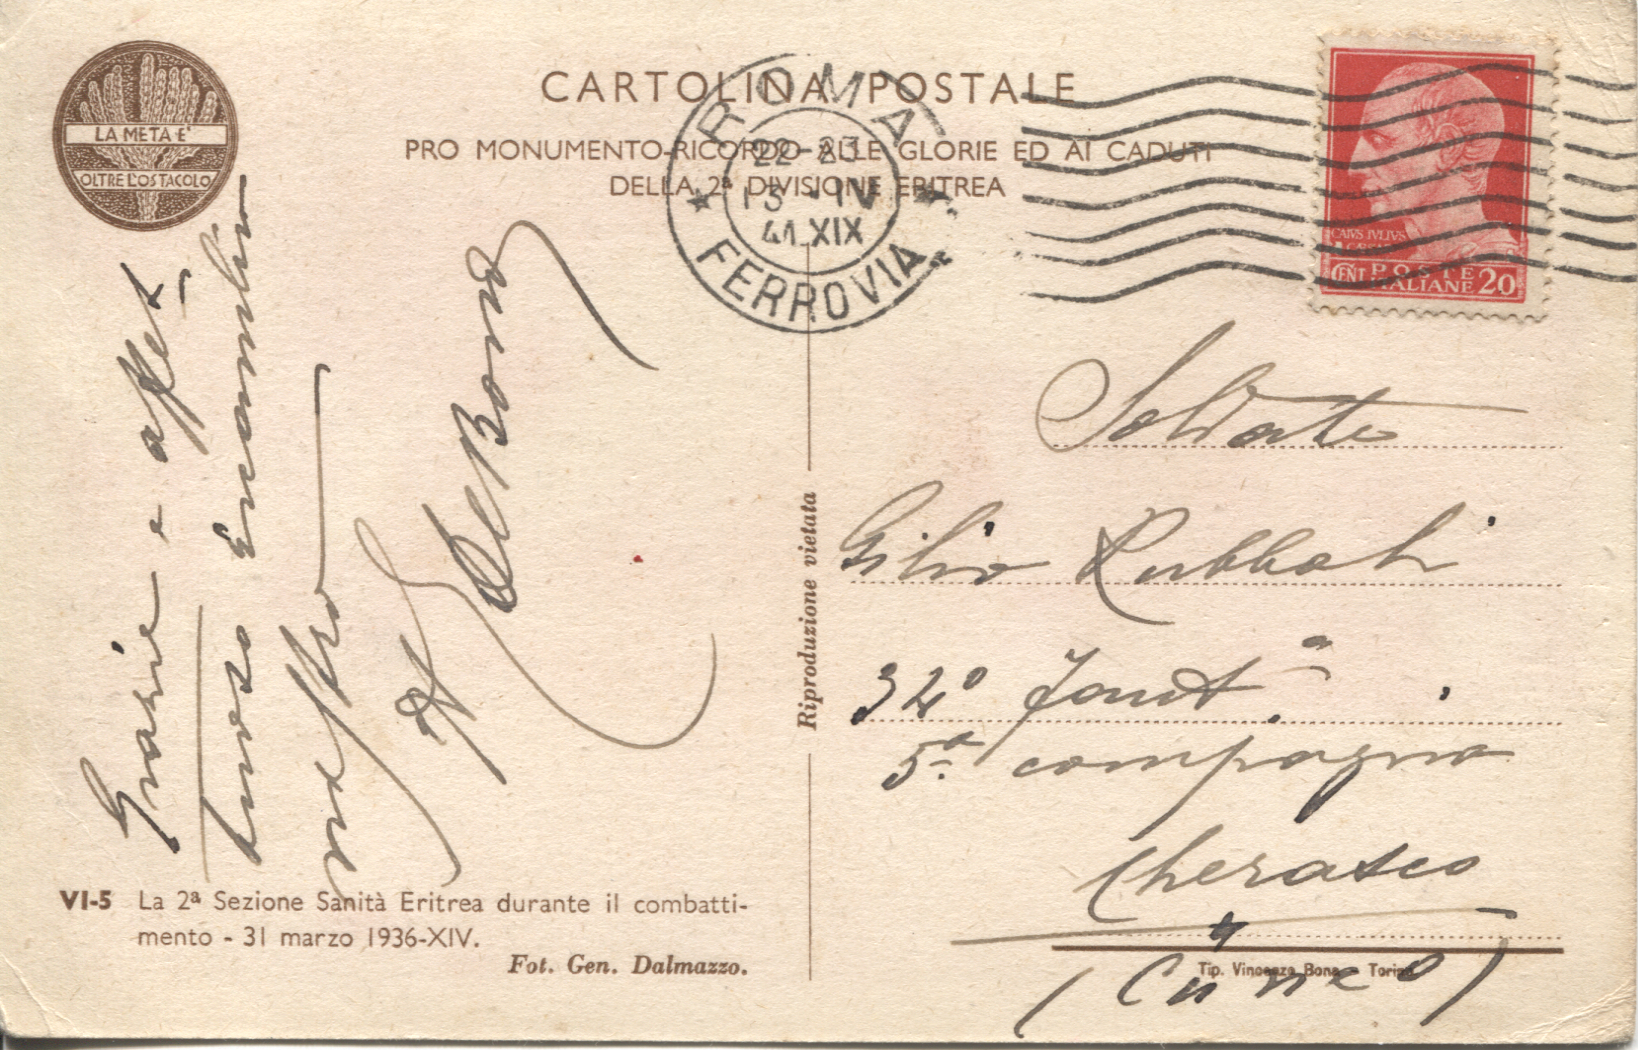 LA META E'
OLTRE L'OSTACOLO
CARTOLINA POSTALE
PRO MONUMENTO-RICORDO ALLE GLORIE ED AI CADUTI
DELLA 2ª DIVISIONE ERITREA
ROMA
22-23
IV
41 XIX
FERROVIA
CAIVS IVLIVS
CENT POSTE 20
ITALIANE
Grazie e affet
tuoso
De Bono
Riproduzione vietata
Soldato
Gilio
34° Fant.ª
5ª compagna
Cherasco
(Cuneo)
VI-5 La 2ª Sezione Sanità Eritrea durante il combatti-
mento - 31 marzo 1936-XIV.
Fot. Gen. Dalmazzo.
Tip. Vincenzo Bona - Torino